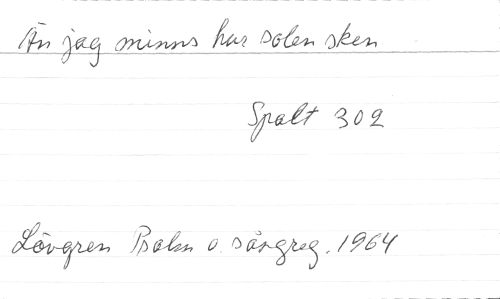 Än jag minns hur solen sken
Spalt 302
Lövgren Psalm o. sångreg. 1964